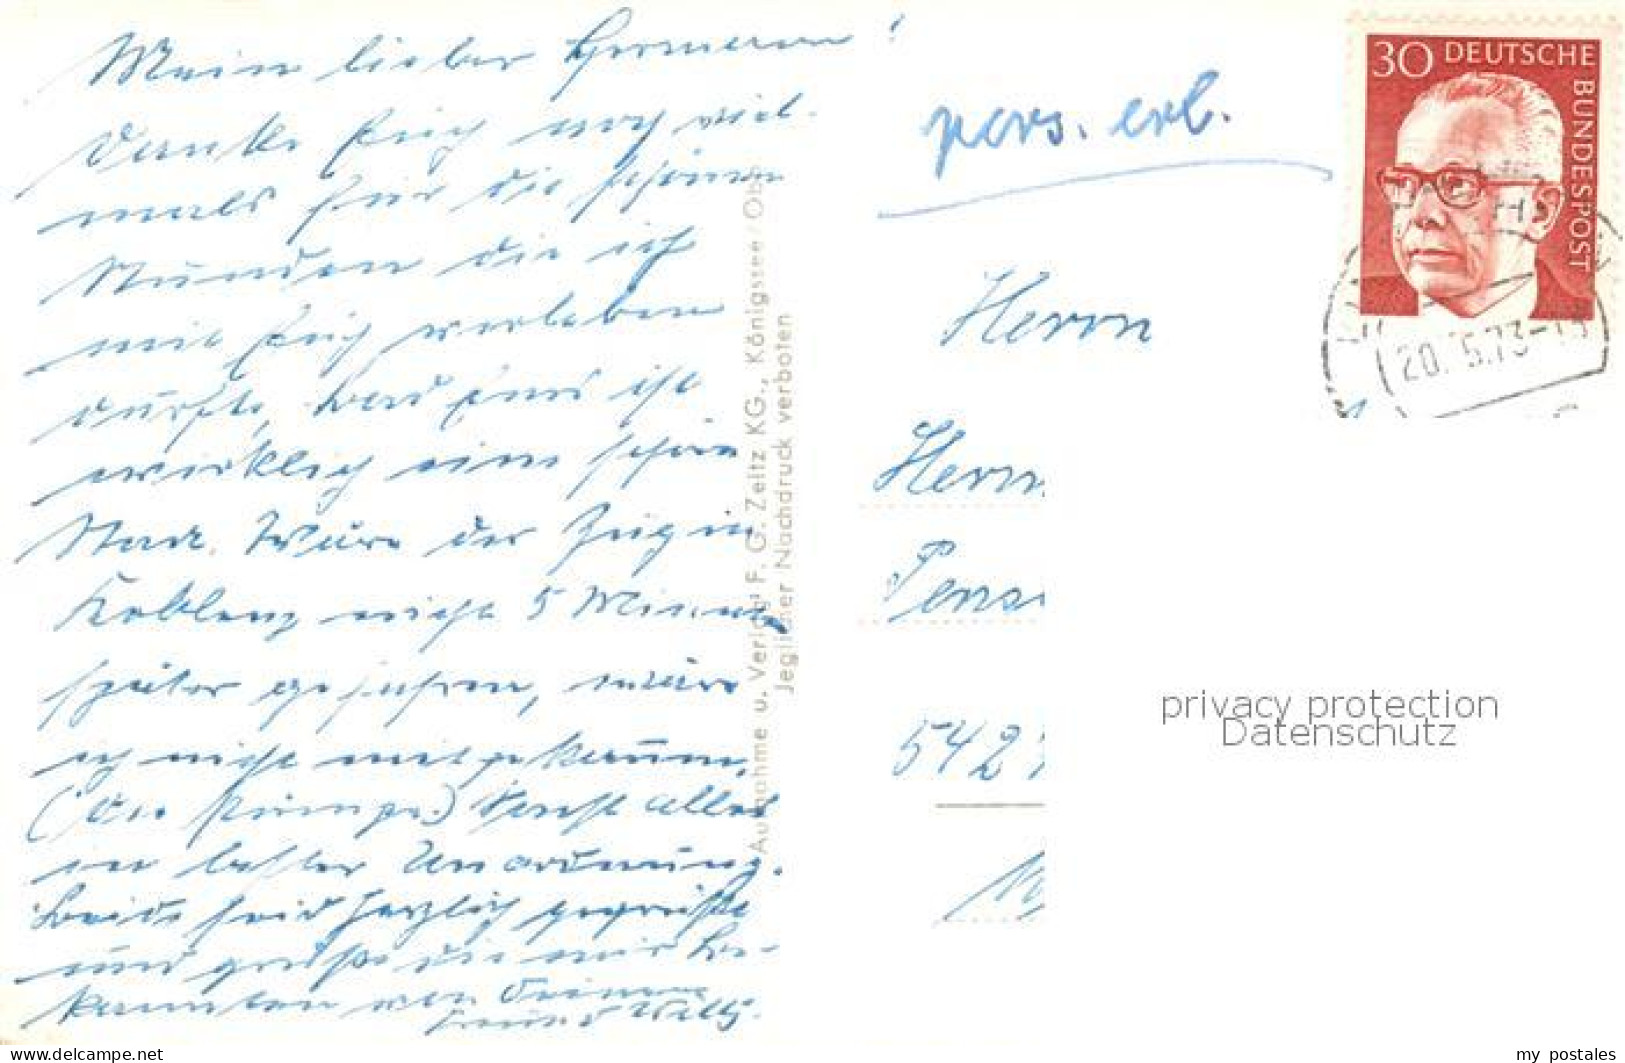 Mein lieber Hermann!
Danke Euch noch viel-
mals für die schönen
Stunden die ich
mit Euch verleben
durfte, bad Ems ist
wirklich eine schöne
Stadt. Wäre der Zug in
Koblenz nicht 5 Minuten
später gefahren, wäre
ich nicht mitgekommen,
(die Pumpe.) Sonst alles
in bester Unordnung.
Beide seid herzlich gegrüßt
und grüße die mir be-
kannten von Deinem
Freund Willy.
Aufnahme u. Verlag F. G. Zeitz KG., Königssee/Obb
Jeglicher Nachdruck verboten
pers. erl.
30 DEUTSCHE
BUNDESPOST
20. 5.73-
Herrn
Herrn
Pens
542
privacy protection
Datenschutz
www.delcampe.net
my_postales